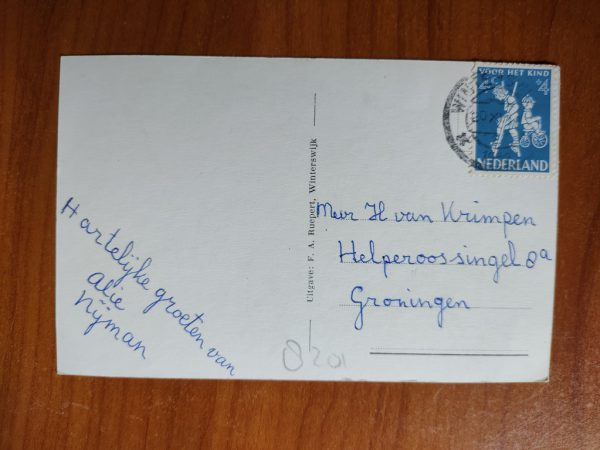 Hartelijke groeten van
Alie
Nijman
Uitgave: F. A. Ruepert, Winterswijk
VOOR HET KIND
+4
NEDERLAND
Mevr H van Krimpen
Helperoossingel 8a
Groningen
8201